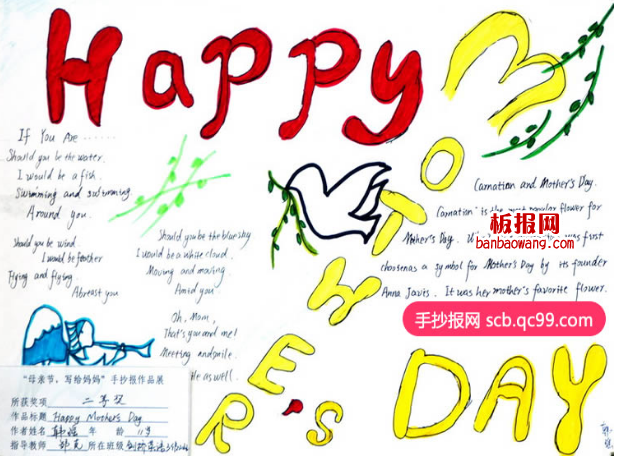 Happy
MOTHER'S
DAY
If You Are ......
Should you be the water.
I would be a fish.
Swimming and swimming
Around you.
Should you be wind
I would be feather
Flying and flying.
Abreast you
Should you be the blue sky
I would be a white cloud.
Moving and moving.
Amid you
Oh, Mom,
That's you and me!
Meeting and smile.
as well.
Carnation and Mother's Day.
Carnation is the most popular flower for
Mother's Day. was first
chosen as a symbol for Mother's Day by its founder
Anna Jarvis. It was her mother's favorite flower.
板报网
banbaowang.com
手抄报网 scb.qc99.com
“母亲节，写给妈妈”手抄报作品展
所获奖项 二等奖
作品标题 Happy Mother's Day
作者姓名 年 龄 11岁
指导教师 所在班级